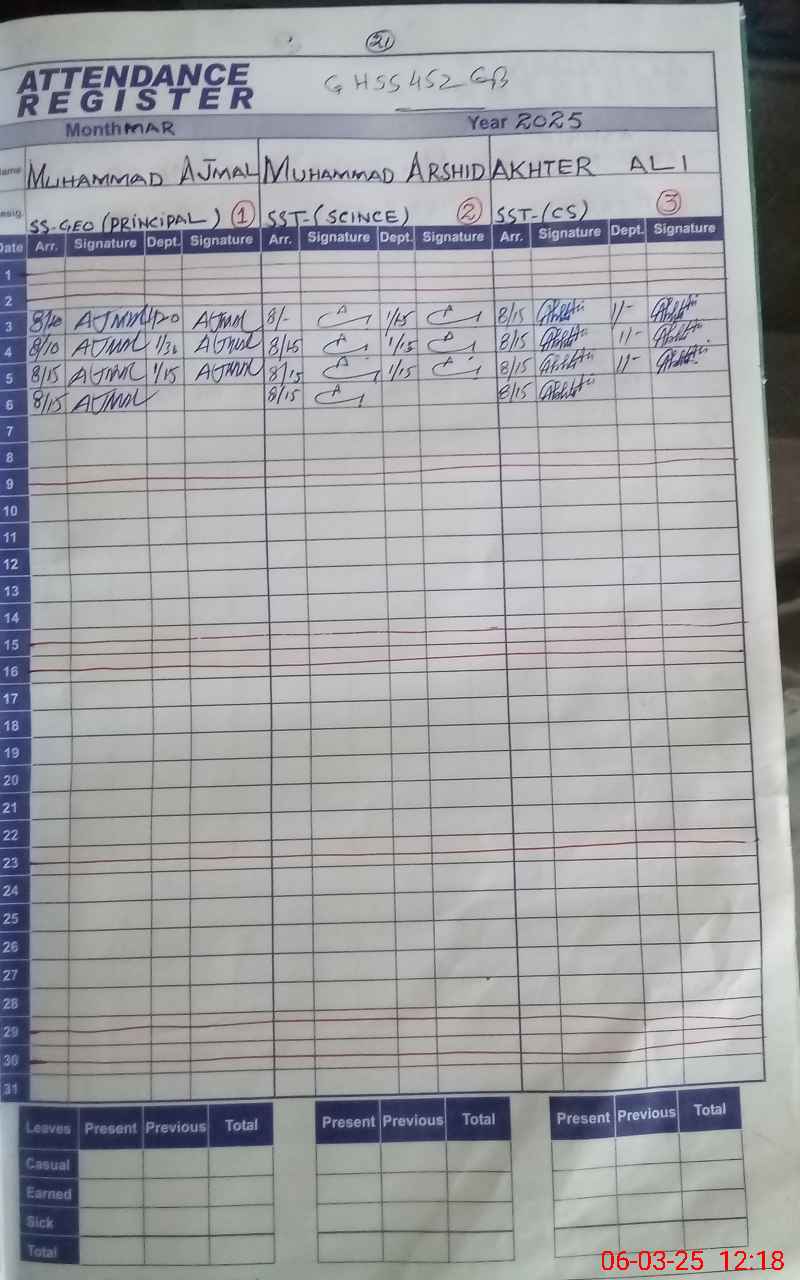 21
ATTENDANCE
REGISTER
GHSS 452 GB
Month MAR Year 2025
ame MUHAMMAD AJMAL MUHAMMAD ARSHID AKHTER ALI
esig. SS-GEO (PRINCIPAL) 1 SST-(SCINCE) 2 SST-(CS) 3
Date Arr. Signature Dept. Signature Arr. Signature Dept. Signature Arr. Signature Dept. Signature
1
2
3 AJMAL 1/20 AJMAL 8/- 1/15 8/15 1/-
4 8/10 AJMAL AJMAL 8/15 1/15 8/15 1/-
5 8/15 AJMAL 1/15 AJMAL 8/15 1/15 8/15 1/-
6 8/15 AJMAL 8/15 8/15
7
8
9
10
11
12
13
14
15
16
17
18
19
20
21
22
23
24
25
26
27
28
29
30
31
Leaves Present Previous Total Present Previous Total Present Previous Total
Casual
Earned
Sick
Total
06-03-25 12:18